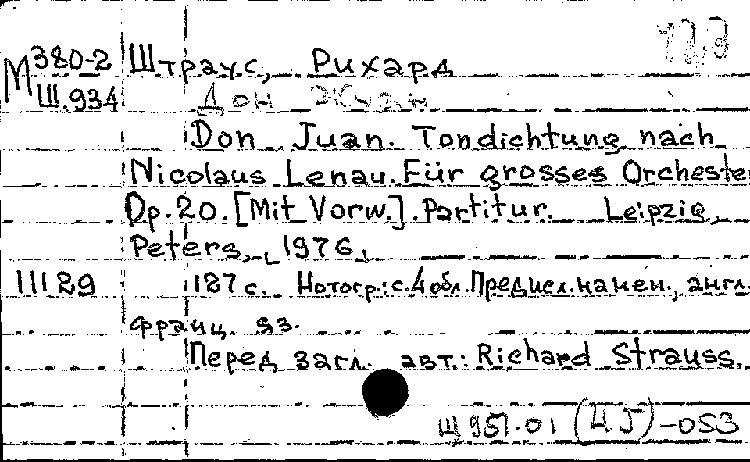 М 380-2 Штраус, Рихард
Ш.934 Дон Жуан
Don Juan. Tondichtung nach
Nicolaus Lenau. Für grosses Orchester
Op. 20. [Mit Vorw.]. Partitur. Leipzig,
Peters, [1976,
11129 187 с. Нотогр.: с. 4 обл. Предисл. на нем., англ.
франц. яз.
Перед загл. авт.: Richard Strauss.
Щ 951.01 (4J)-053